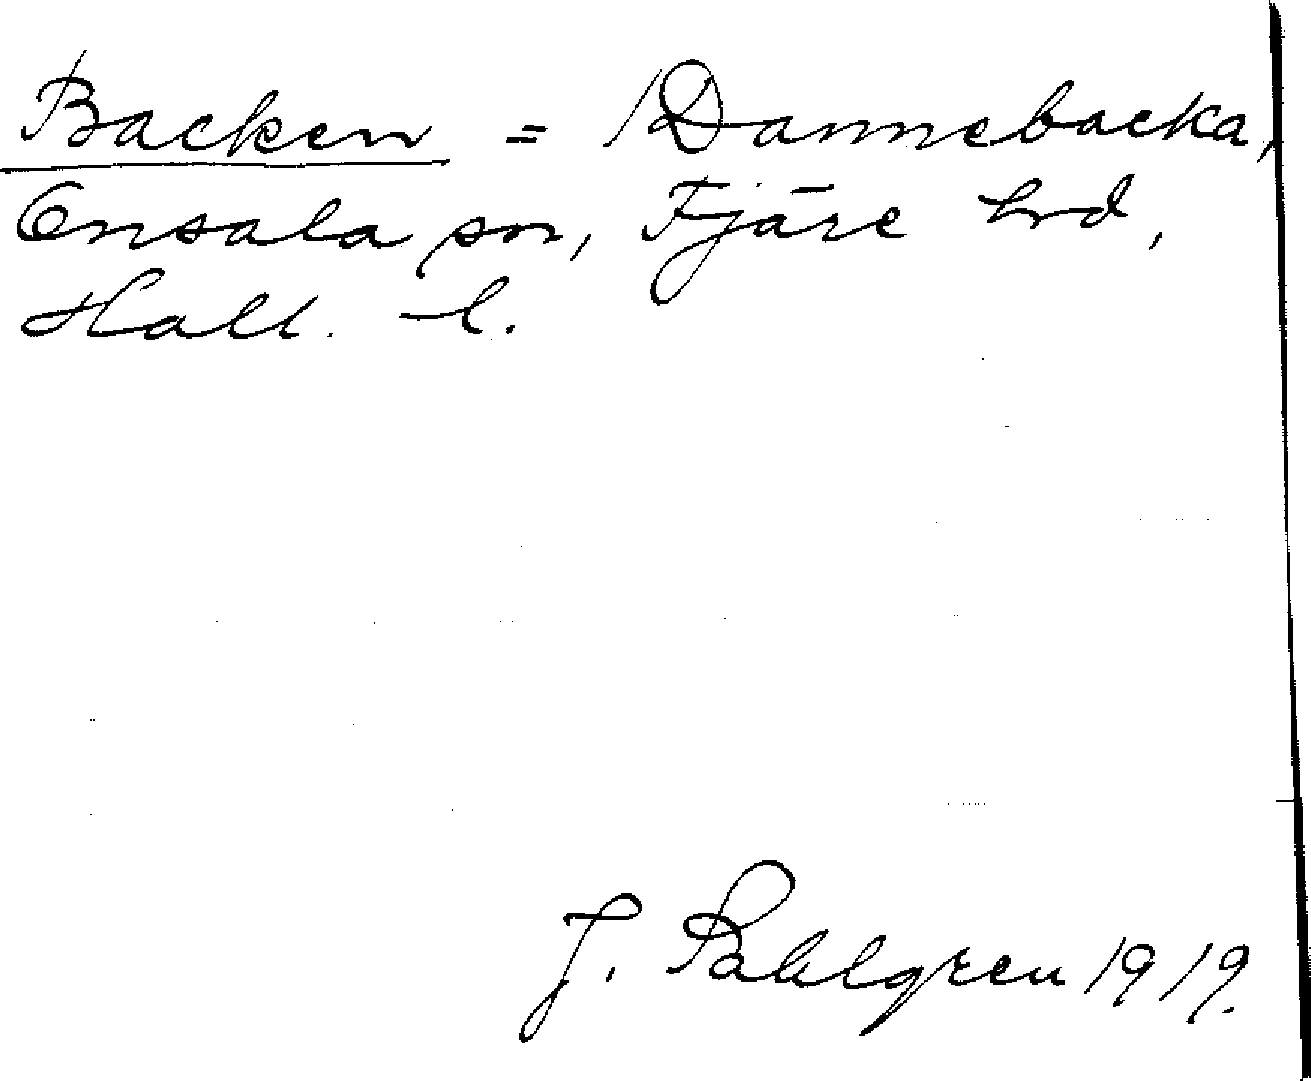 Backen = Dannebacka,
Onsala sn, Fjäre hrd,
Hall. l.
J. Sahlgren 1919.